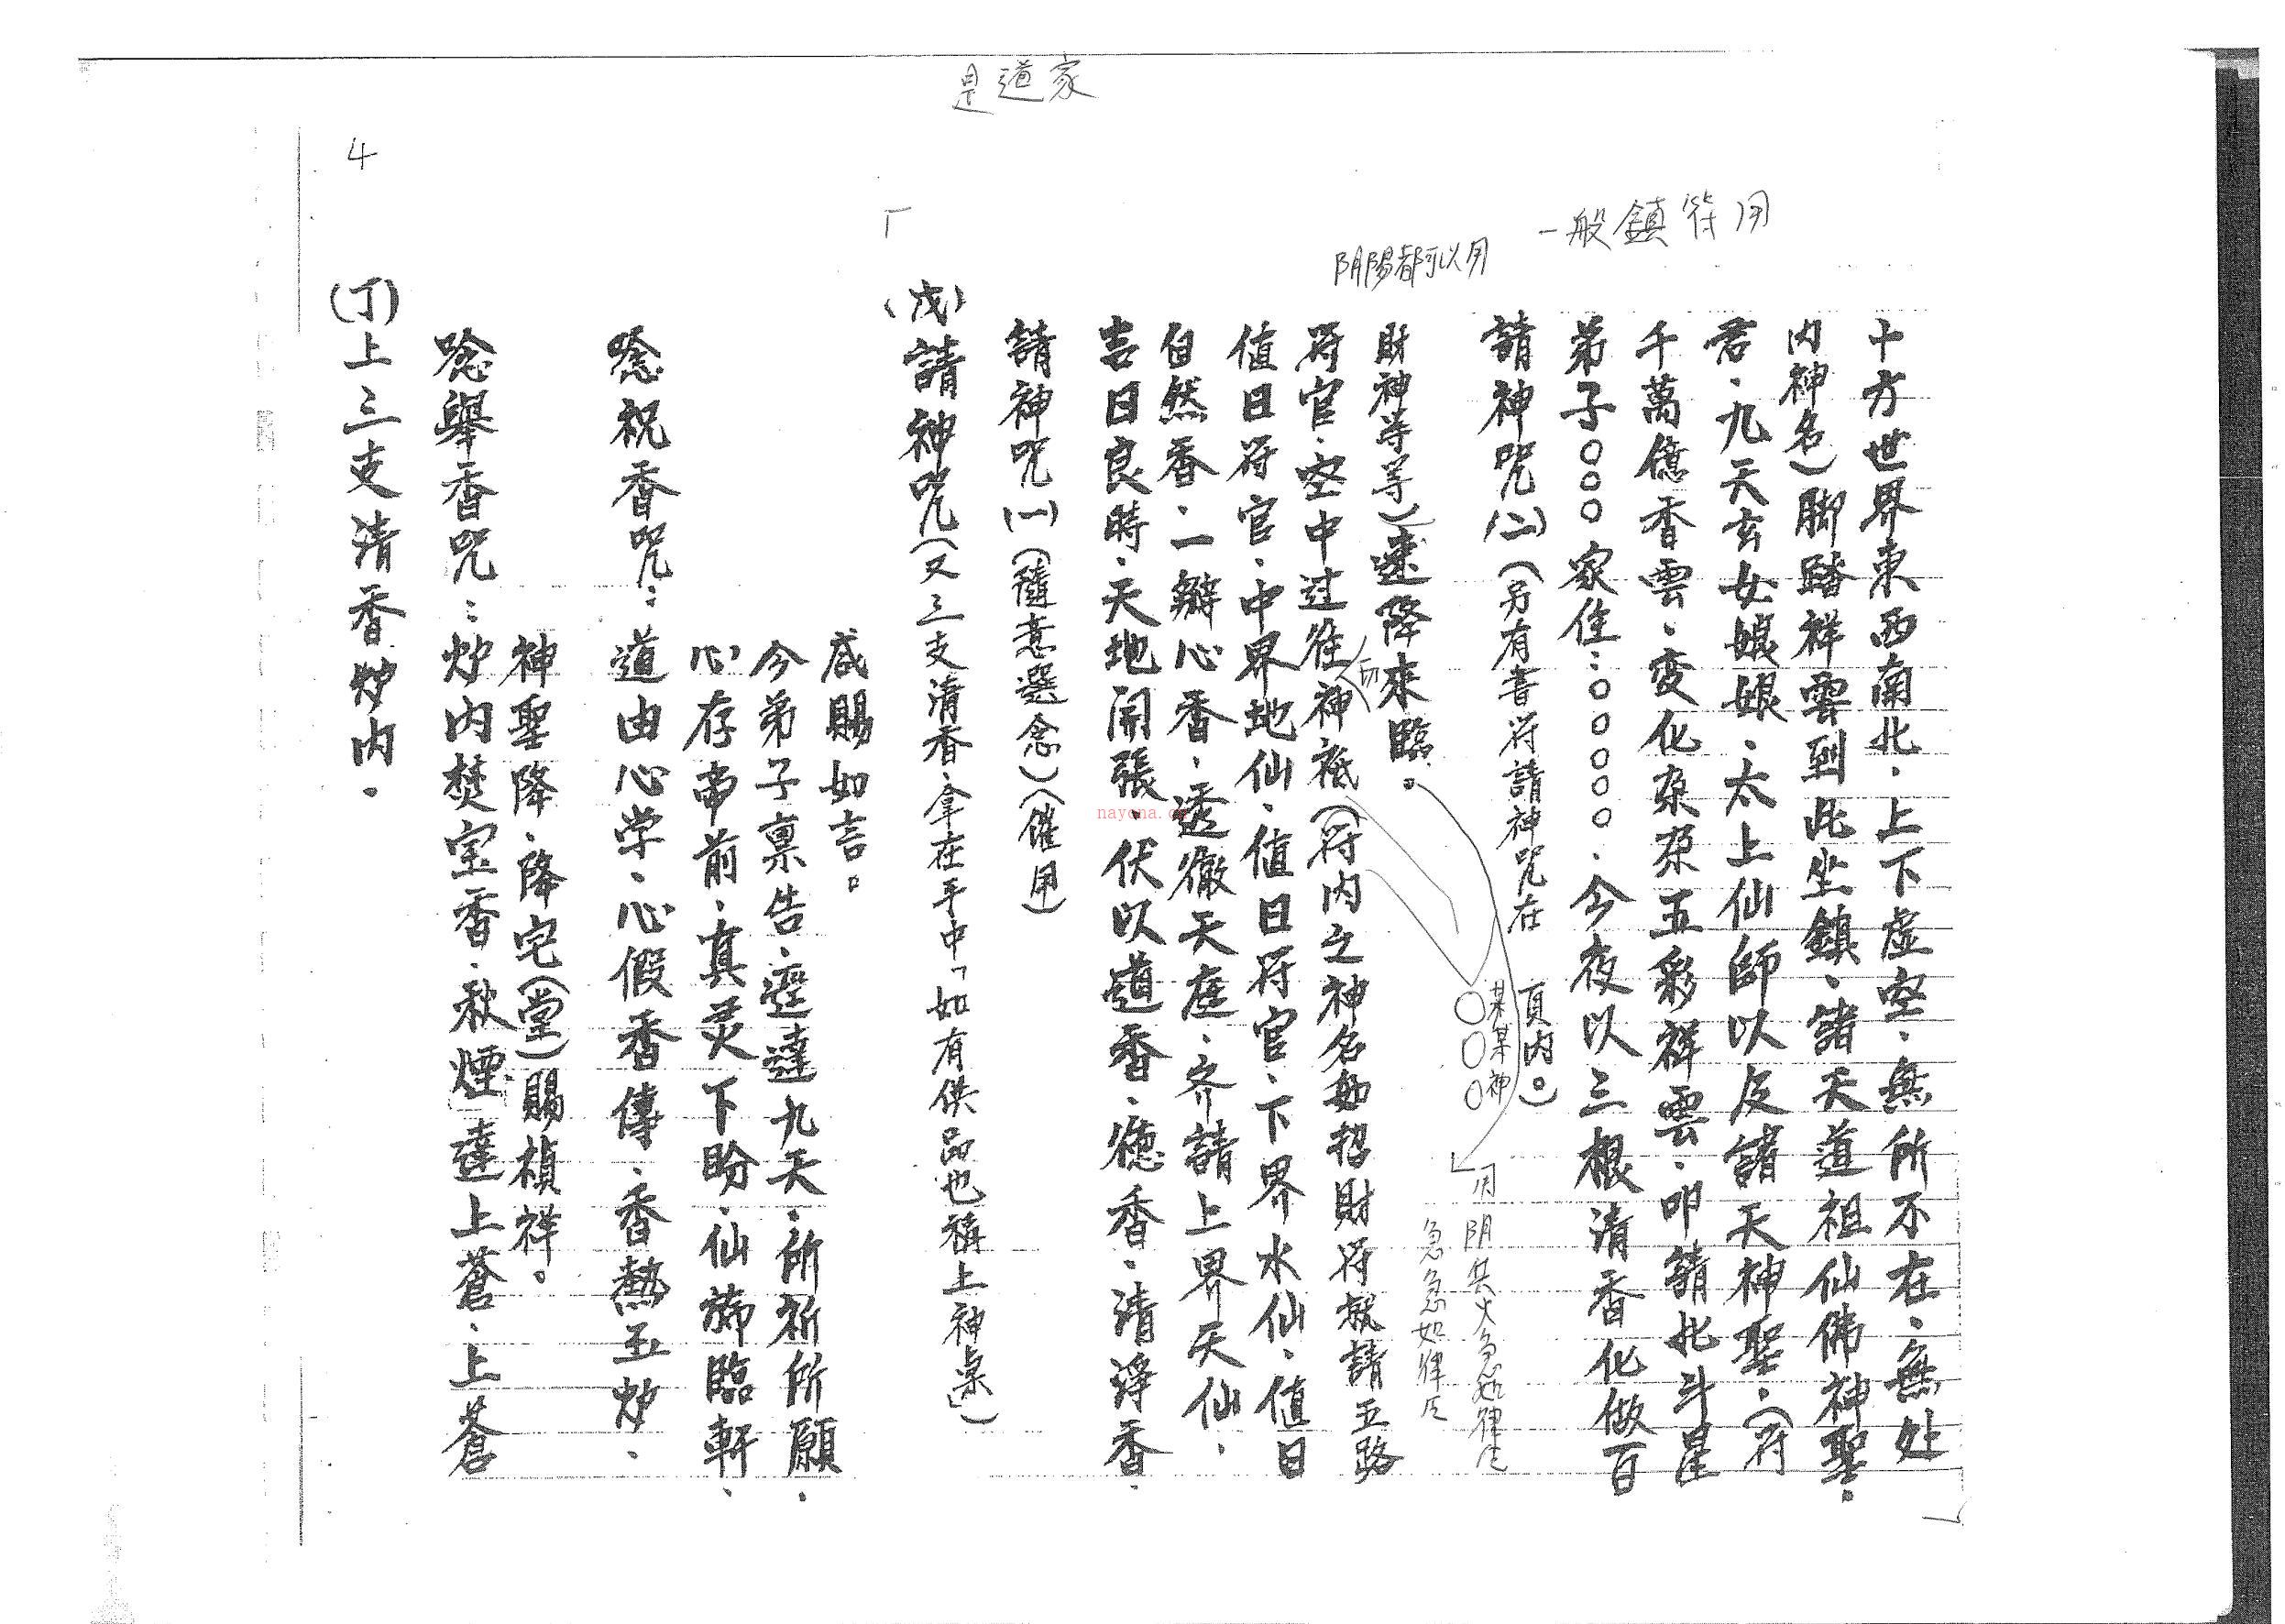 是道家
4
一般鎮符用
阴陽都可以用
(丁)上三支清香炉内。
唸舉香咒:炉内焚宝香、秋煙達上蒼、上蒼
神聖降、降宅(堂)賜禎祥。
唸祝香咒:道由心学、心假香傳、香熱玉炉、
心存帝前、真灵下盼、仙旆臨軒、
今弟子禀告、逕達九天、所祈所願、
咸賜如言。
「
(戊)請神咒(又三支清香、拿在手中「如有供品也稱上神桌」)
請神咒(一)(隨意選念)(催用)
吉日良時、天地開張、伏以道香、德香、清淨香、
自然香、一瓣心香、透徹天庭、齐請上界天仙、
值日符官、中界地仙、值日符官、下界水仙、值日
符官、空中过往神祇(符内之神名如招財符就請五路
財神等等)速降來臨。
某某神
○○○
用阴兵火急如律令
急急如律令
請神咒(二)(另有書符請神咒在 頁内。)
弟子○○○家住:○○○○○、今夜以三根清香化做百
千萬億香雲、変化朶朶五彩祥雲、叩請北斗星
君、九天玄女娘娘、太上仙師以及諸天神聖、(符
内神名)脚踏祥雲到此坐鎮、諸天道祖仙佛神聖、
十方世界東西南北、上下虛空、無所不在、無処
」